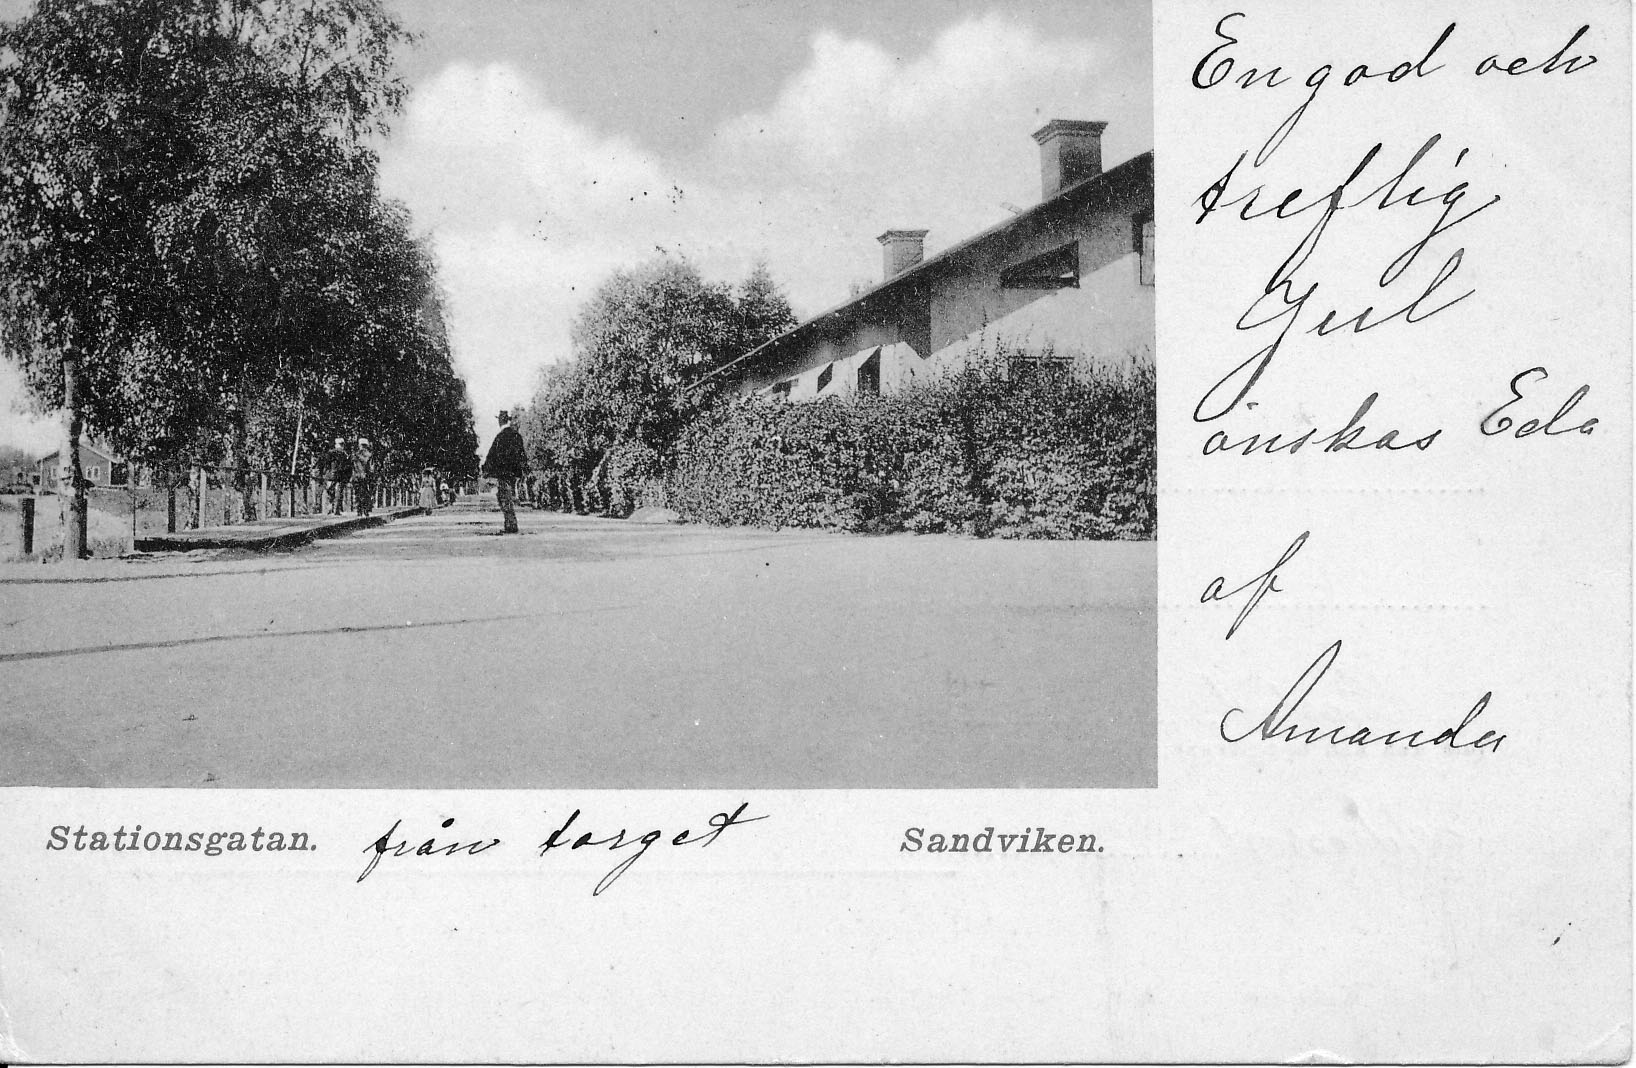 En god och
treflig
Jul
önskas Eda
af
Amanda
Stationsgatan. från torget Sandviken.